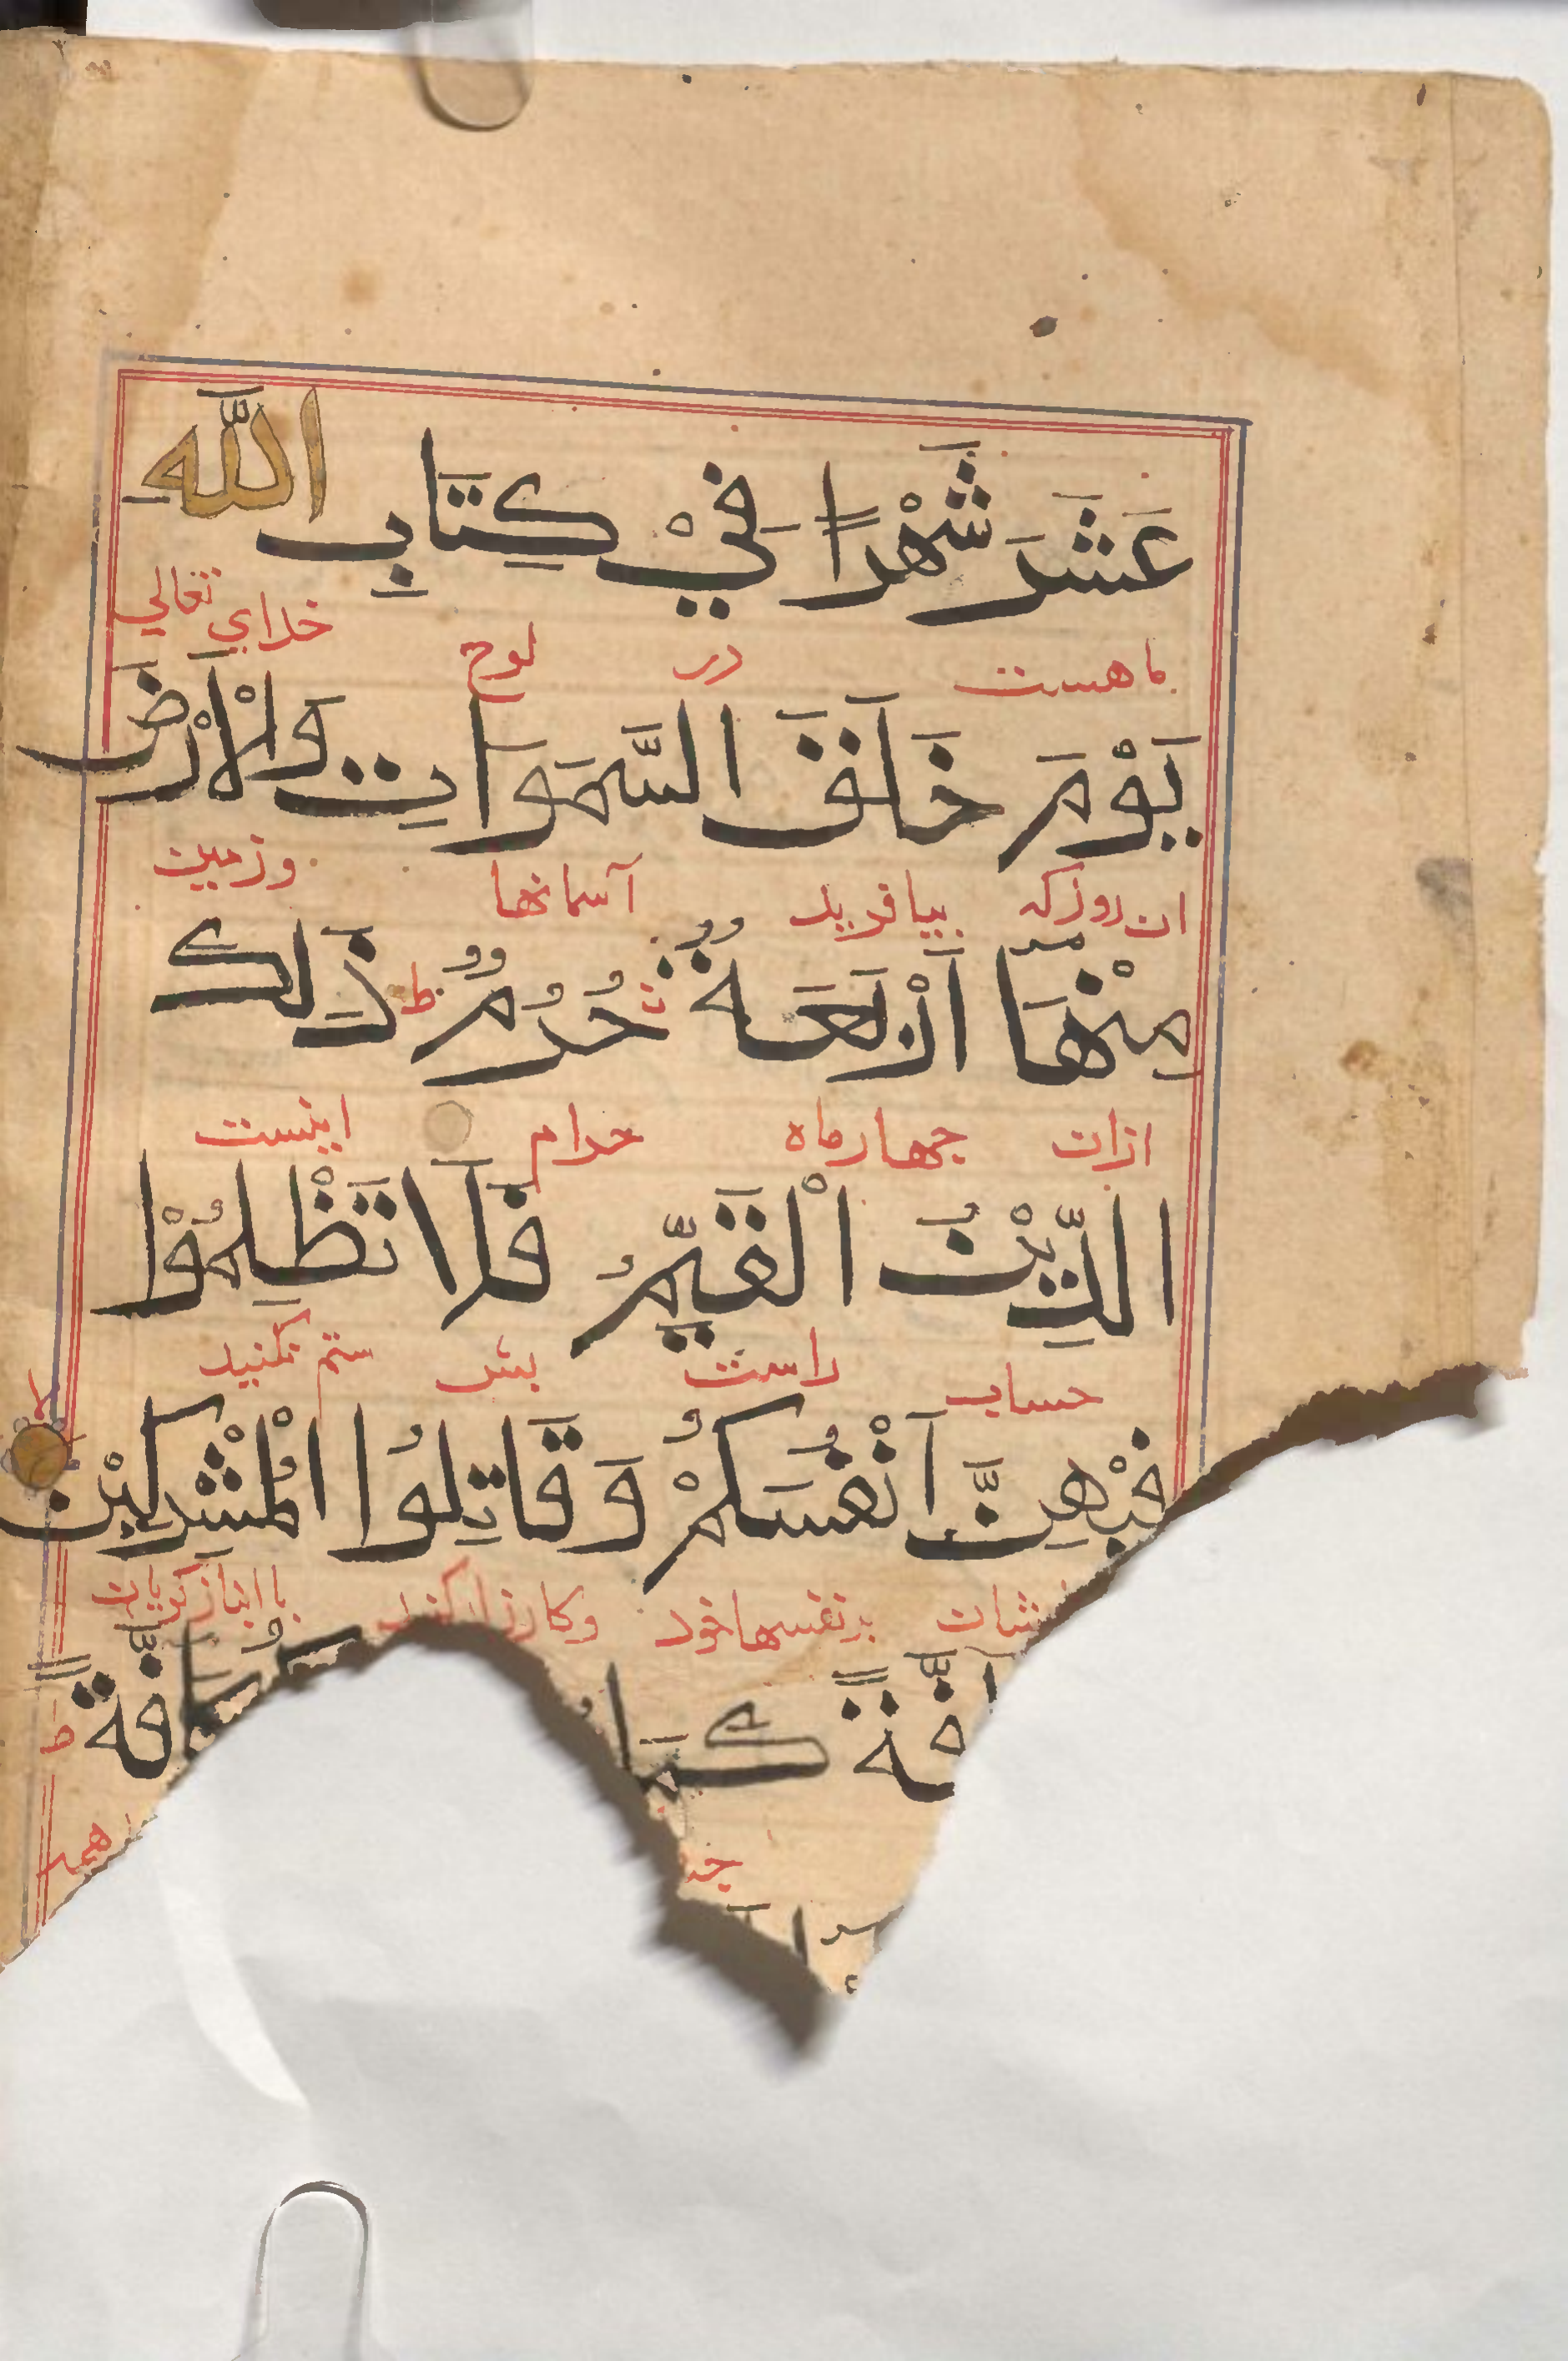 عَشَرَ شَهْرًا فِيْ كِتَابِ اللّٰهِ
ماهست در لوح خداي تعالي
يَوْمَ خَلَقَ السَّمَوَاتِ وَالْاَرْضَ
ان روز كه بيافريد آسمانها وزمين
مِنْهَا اَرْبَعَةٌ حُرُمٌ ط ذَالِكَ
ازان چهارماه حرام اينست
الدِّيْنُ الْقَيِّمُ فَلَا تَظْلِمُوْا
حساب راست پس ستم نكنيد
فِيْهِنَّ اَنْفُسَكُمْ وَقَاتِلُوا الْمُشْرِكِيْنَ لا
بر نفسها خود وكارزار كنيد با انبازكويان
كَمَا كَافَّةً ط
همه